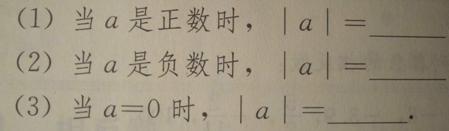 (1) 当 a 是正数时，| a | =______
(2) 当 a 是负数时，| a | =______
(3) 当 a=0 时，| a | =______.